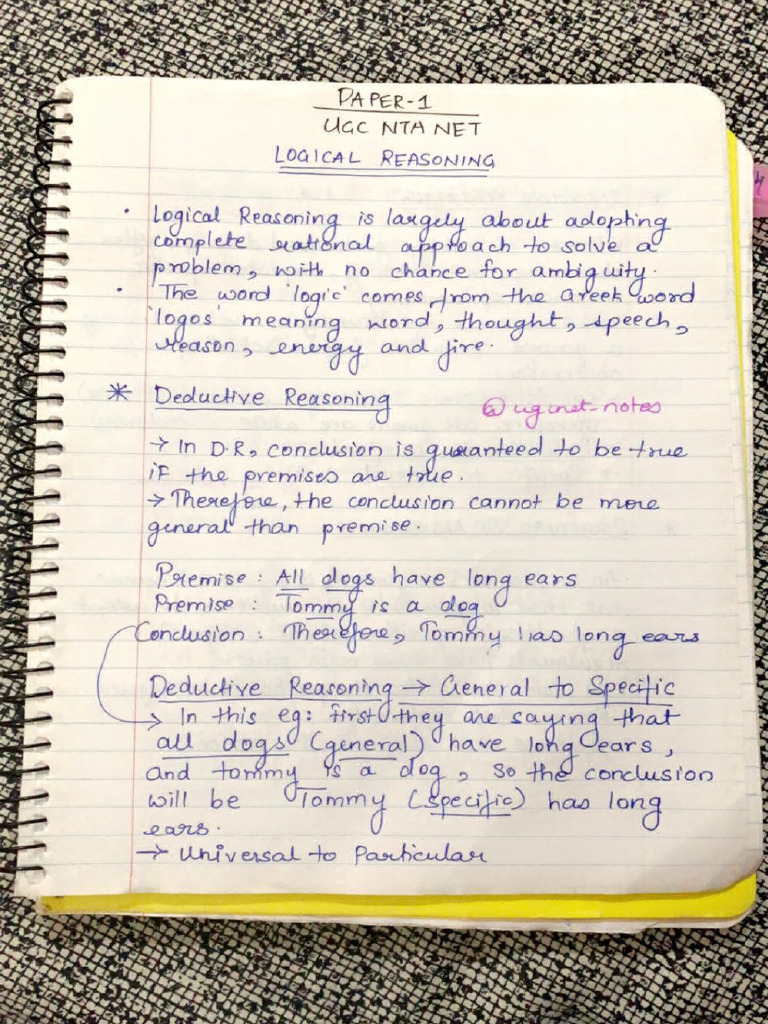 PAPER-1
UGC NTA NET
LOGICAL REASONING
• Logical Reasoning is largely about adopting
complete rational approach to solve a
problem, with no chance for ambiguity.
• The word 'logic' comes from the Greek word
'logos' meaning word, thought, speech,
reason, energy and fire.
* Deductive Reasoning
@ugcnet-notes
→ In D.R, conclusion is guaranteed to be true
if the premises are true.
→ Therefore, the conclusion cannot be more
general than premise.
Premise : All dogs have long ears
Premise : Tommy is a dog
Conclusion : Therefore, Tommy has long ears
Deductive Reasoning → General to Specific
→ In this eg: first they are saying that
all dogs (general) have long ears,
and tommy is a dog, so the conclusion
will be Tommy (specific) has long
ears.
→ Universal to Particular